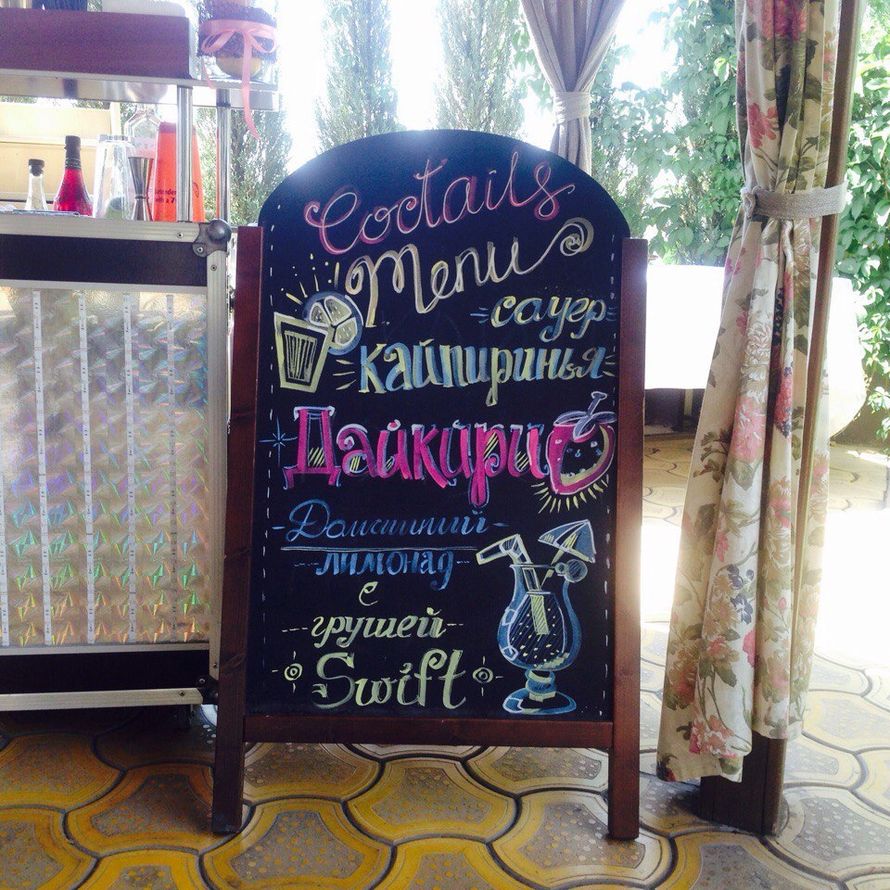 Coctails
Menu
сауер
Кайпиринья
Дайкири
Домашний
лимонад
с
грушей
Swift